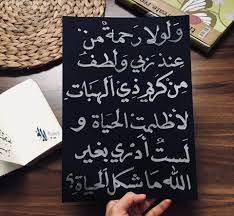 وَلَولا رَحمةٌ مِن
عندِ رَبي ولُطف
مِن كريمٍ ذي الهِبات
لأظلمت الحياة و
لستُ أدري بغير
الله ما شكل الحياة؟